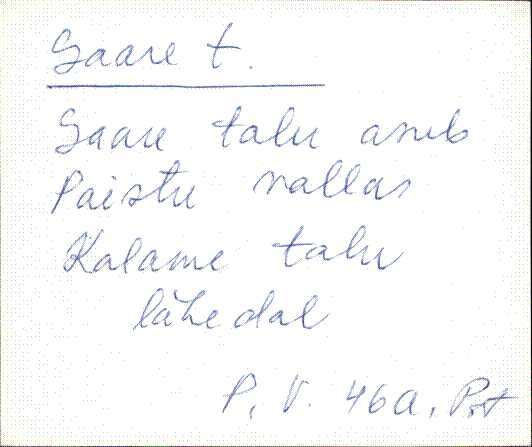 Saare t.
Saare talu asub
Paistu vallas
Kalame talu
lähedal
P. V. 46a, Pst